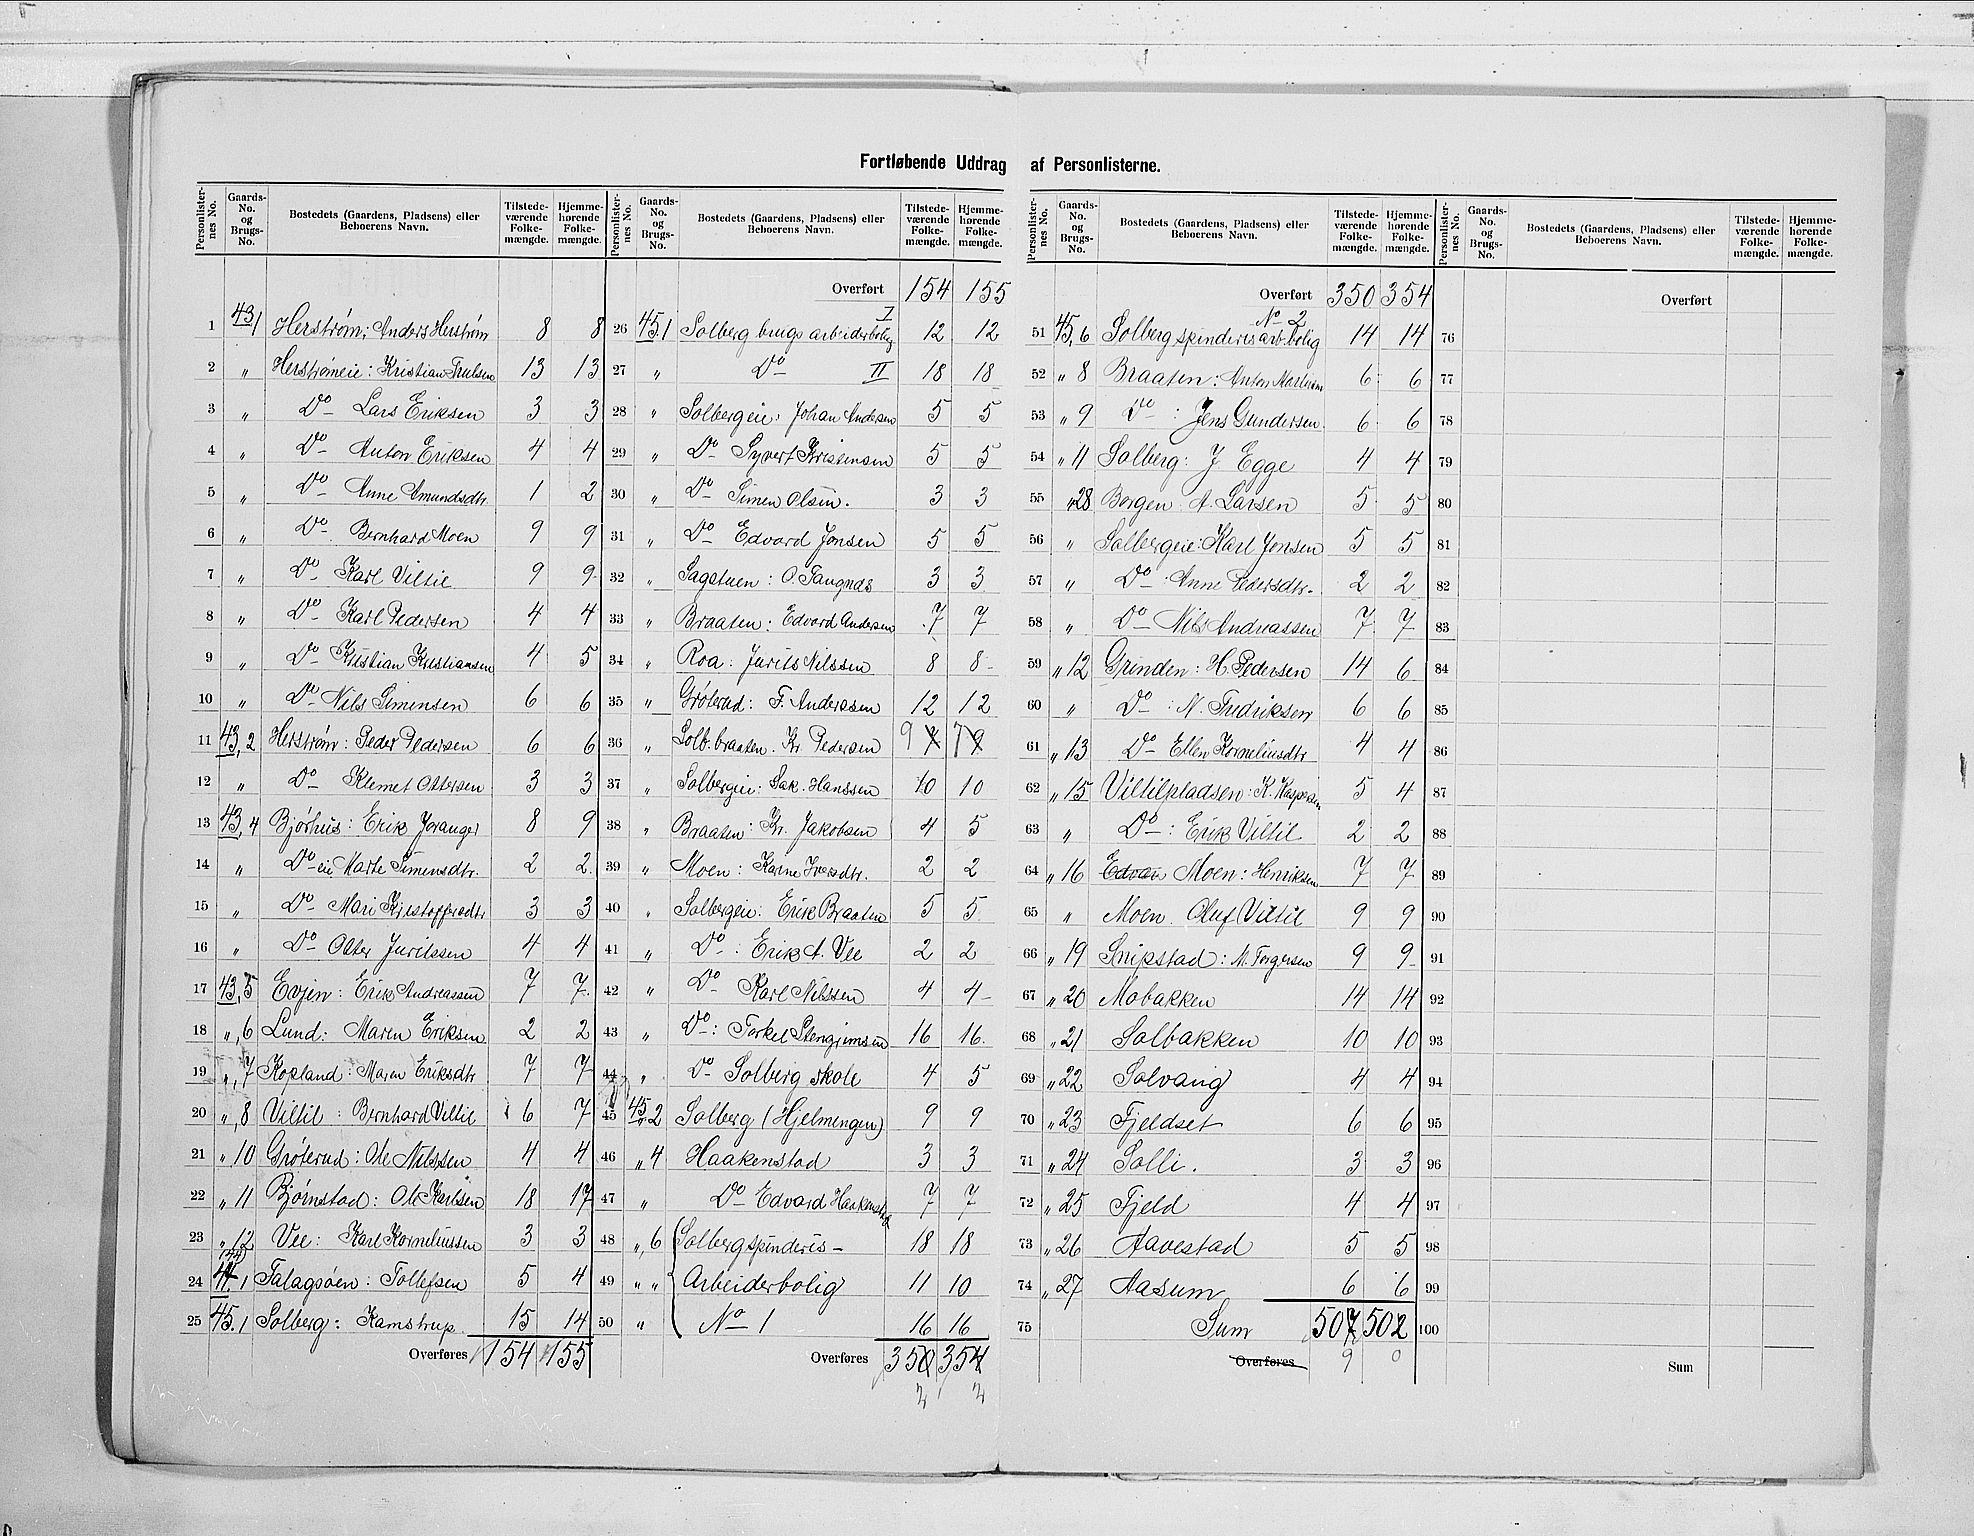 Fortløbende Uddrag af Personlisterne.
Personlister-nes No. Gaards-No. og Brugs-No. Bostedets (Gaardens, Pladsens) eller Beboerens Navn. Tilstede-værende Folke-mængde. Hjemme-hørende Folke-mængde.
1 43,1 Herstrøm: Anders Herstrøm 8 8
2 " Herstrømeie: Kristian Trulsen 13 13
3 " Do Lars Eriksen 3 3
4 " Do Anton Eriksen 4 4
5 " Do Anne Amundsdtr. 1 2
6 " Do Bernhard Moen 9 9
7 " Do Karl Viltil 9 9
8 " Do Karl Pedersen 4 4
9 " Do Kristian Kristiansen 4 5
10 " Do Nils Simensen 6 6
11 43,2 Herstrøm: Peder Pedersen 6 6
12 " Do Klemet Ottersen 3 3
13 43,4 Bjørhus: Erik Joranger 8 9
14 " Do eie Marte Simensdtr. 2 2
15 " Do Mari Kristoffersdtr 3 3
16 " Do Otter Juritssen 4 4
17 43,5 Evjen: Erik Andreassen 7 7
18 ",6 Lund: Maren Eriksen 2 2
19 ",7 Kopland: Maren Eriksdtr 7 7
20 ",8 Viltil: Bernhard Viltil 6 7
21 " 10 Grøterud: Ole Nilssen 4 4
22 " 11 Bjørnstad: Ole Karlsen 18 17
23 " 12 Vee: Karl Korneliussen 3 3
24 44.1 Talagsøen: Tollefsen 5 4
25 45.1 Solberg: Kamstrup 15 14
Overføres 154 155
Personlister-nes No. Gaards-No. og Brugs-No. Bostedets (Gaardens, Pladsens) eller Beboerens Navn. Tilstede-værende Folke-mængde. Hjemme-hørende Folke-mængde.
Overført 154 155
26 45,1 Solberg brugs arbeiderbolig I 12 12
27 " Do II 18 18
28 " Solbergeie: Johan Andersen 5 5
29 " Do Syvert Kristensen 5 5
30 " Do Simen Olsen. 3 3
31 " Do Edvard Jonsen 5 5
32 " Sagstuen: O. Taugnæs 3 3
33 " Braaten: Edvard Andersen 7 7
34 " Roa: Jurits Nilssen 8 8
35 " Grøterud: F. Anderssen 12 12
36 " Solb.braaten. Kr. Pedersen 9 7 7 9
37 " Solbergeie: Sak. Hanssen 10 10
38 " Braaten: Kr. Jakobsen 4 5
39 " Moen: Karine Iversdtr. 2 2
40 " Solbergeie: Erik Braaten 5 5
41 " Do: Erik A. Vee 2 2
42 " Do Karl Nilssen 4 4
43 " Do: Torkel Stengrimsen 16 16
44 " Do Solberg skole 4 5
45 45,2 Solberg (Hjelmengen) 9 9
46 " 4 Haakenstad 3 3
47 " Do Edvard Haakenstad 7 7
48 ",6 Solbergspinderis- 18 18
49 " " Arbeiderbolig 11 10
50 " No 1 16 16
Overføres 350 354
2 2
Personlister-nes No. Gaards-No. og Brugs-No. Bostedets (Gaardens, Pladsens) eller Beboerens Navn. Tilstede-værende Folke-mængde. Hjemme-hørende Folke-mængde.
Overført 350 354
51 45,6 Solberg spinderis arb.bolig No 2 14 14
52 " 8 Braaten: Anton Martinsen 6 6
53 " 9 Do: Jens Gundersen 6 6
54 " 11 Solberg: J Egge 4 4
55 " 28 Borgen A. Larsen 5 5
56 " Solbergeie: Karl Jonsen 5 5
57 " Do: Anne Pedersdtr. 2 2
58 " Do Nils Andreassen 7 7
59 " 12 Grinden: H. Pedersen 14 6
60 " Do: N. Fredriksen 6 6
61 " 13 Do Ellen Korneliusdtr 4 4
62 " 15 Viltilpladsen: K. Kaspersen 5 4
63 " Do: Erik Viltil 2 2
64 " 16 Edvar Moen: Henriksen 7 7
65 " Moen Oluf Viltil 9 9
66 " 19 Snipstad: M. Torgersen 9 9
67 " 20 Mobakken 14 14
68 " 21 Solbakken 10 10
69 " 22 Solvang 4 4
70 " 23 Fjeldset 6 6
71 " 24 Solli. 3 3
72 " 25 Fjeld 4 4
73 " 26 Aavestad 5 5
74 " 27 Aasum 6 6
75 Sum 507 502
Overføres 9 0
Personlister-nes No. Gaards-No. og Brugs-No. Bostedets (Gaardens, Pladsens) eller Beboerens Navn. Tilstede-værende Folke-mængde. Hjemme-hørende Folke-mængde.
Overført
76
77
78
79
80
81
82
83
84
85
86
87
88
89
90
91
92
93
94
95
96
97
98
99
100
Sum